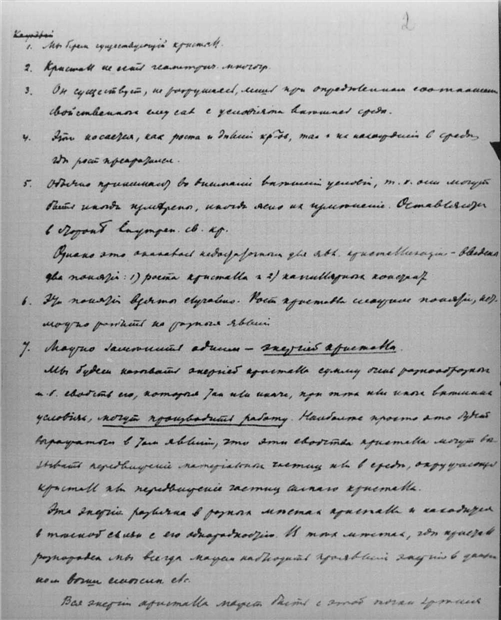 2
1. Мы берем существующий кристалл.
2. Кристалл не есть геометрич. многогр.
3. Он существует, не разрушаясь, лишь при определенном соотношении
свойственных ему сил с условиями внешней среды.
4. Это касается, как роста и , так и нахождения в среде,
где рост прекратился.
5. Обычно принимают во внимание внешние условия, т. к. они могут
быть иногда измерены, иногда ясно их изменение. Оставляются
в стороне внутрен. св. кр.
Однако это оказалось недостаточным для явл. кристаллизации – введены
два понятия: 1) роста кристалла и 2) капиллярных констант
6. Эти понятия взяты случайно. Рост кристалла сложное понятие,
можно разбить на разные явления
7. Можно заменить одним – энергией кристалла.
Мы будем называть энергией кристалла сумму очень разнообразных
свойств его, которые так или иначе, при тех или иных внешних
условиях, могут производить работу. Наиболее просто это будет
выражаться в том явлении, что эти свойства кристалла могут вы-
зывать передвижение материальных частиц или в среде, окружающей
кристалл или передвижение частиц самого кристалла.
Эта энергия различна в разных местах кристалла и находится
в тесной связи с его однородностью. В тех местах, где кристалл
разнороден мы всегда можем наблюдать проявление энергии в данном
выше смысле
Вся энергия кристалла может быть с этой точки зрения